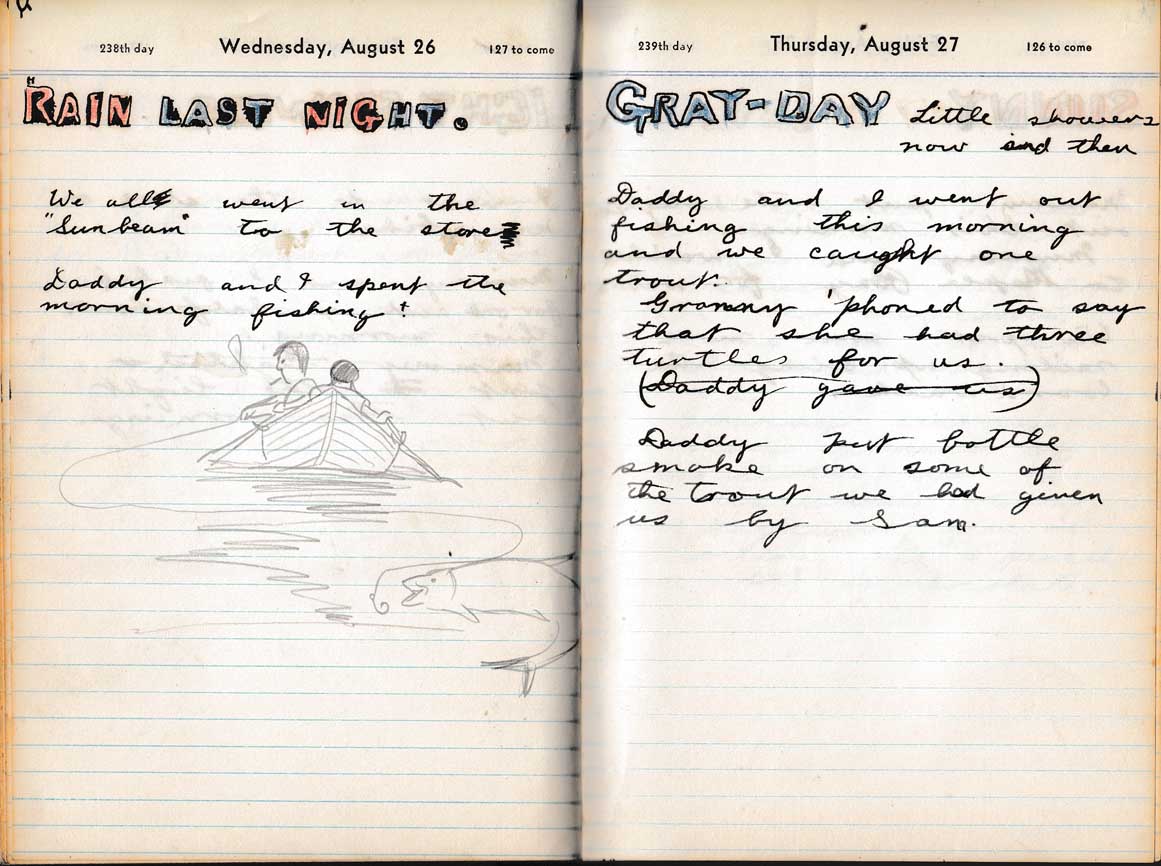 238th day Wednesday, August 26 127 to come
RAIN LAST NIGHT.
We all went in the
"Sunbeam" to the store
Daddy and I spent the
morning fishing!
239th day Thursday, August 27 126 to come
GRAY-DAY Little showers
now and then
Daddy and I went out
fishing this morning
and we caught one
trout.
Granny 'phoned to say
that she had three
turtles for us.
(Daddy gave us)
Daddy put bottle
smoke on some of
the trout we had given
us by Sam.